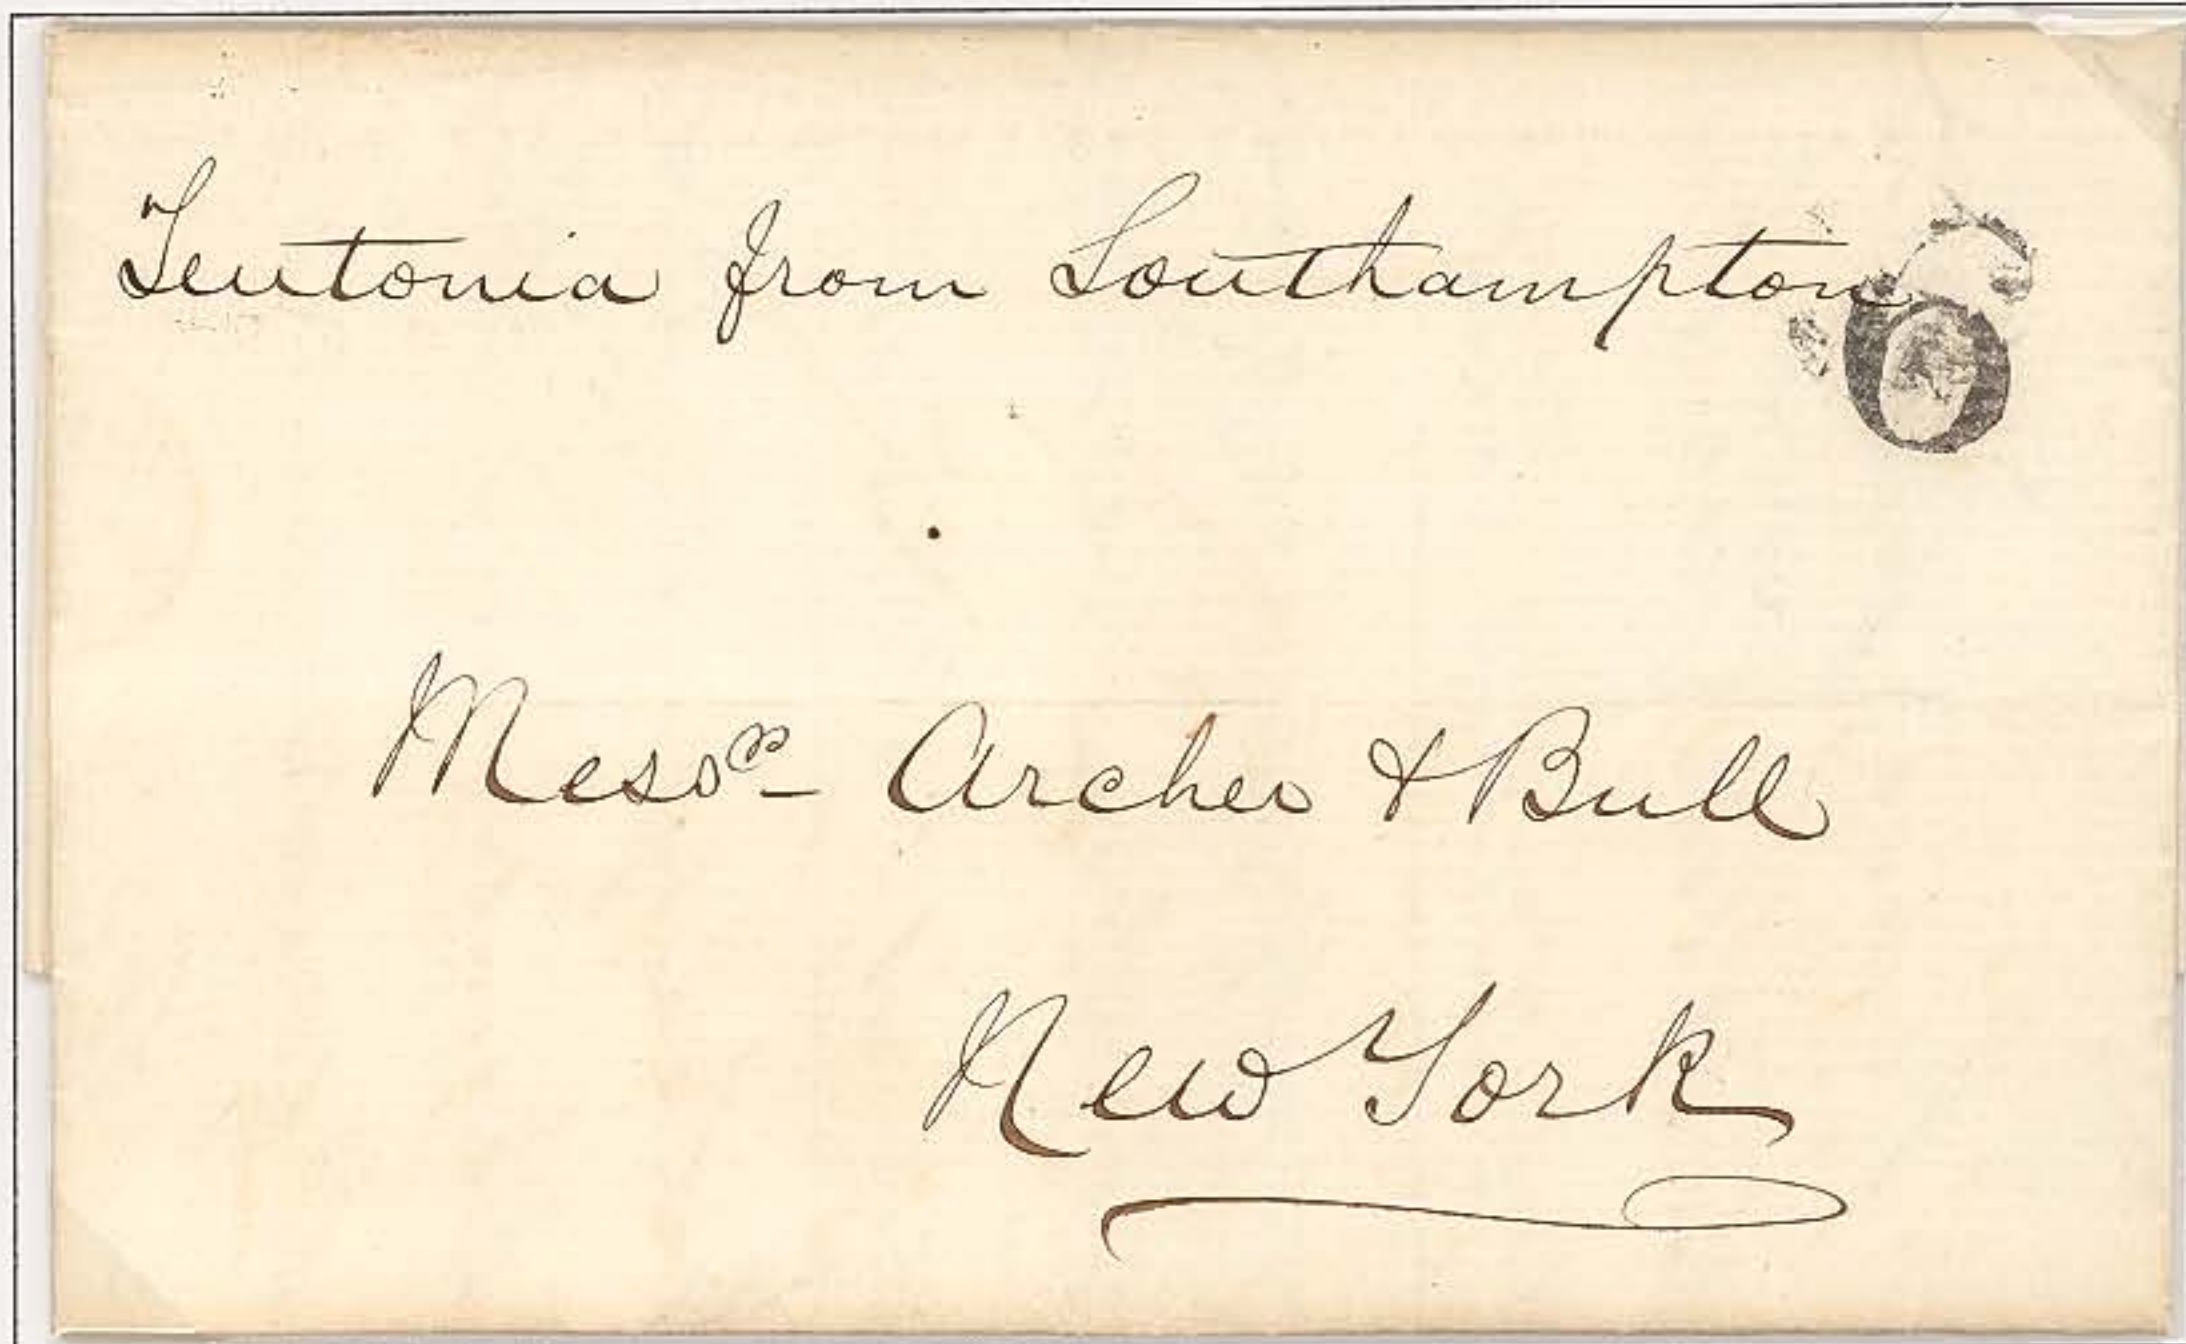 Teutonia from Southampton
6
Messrs Archer & Bull
New York